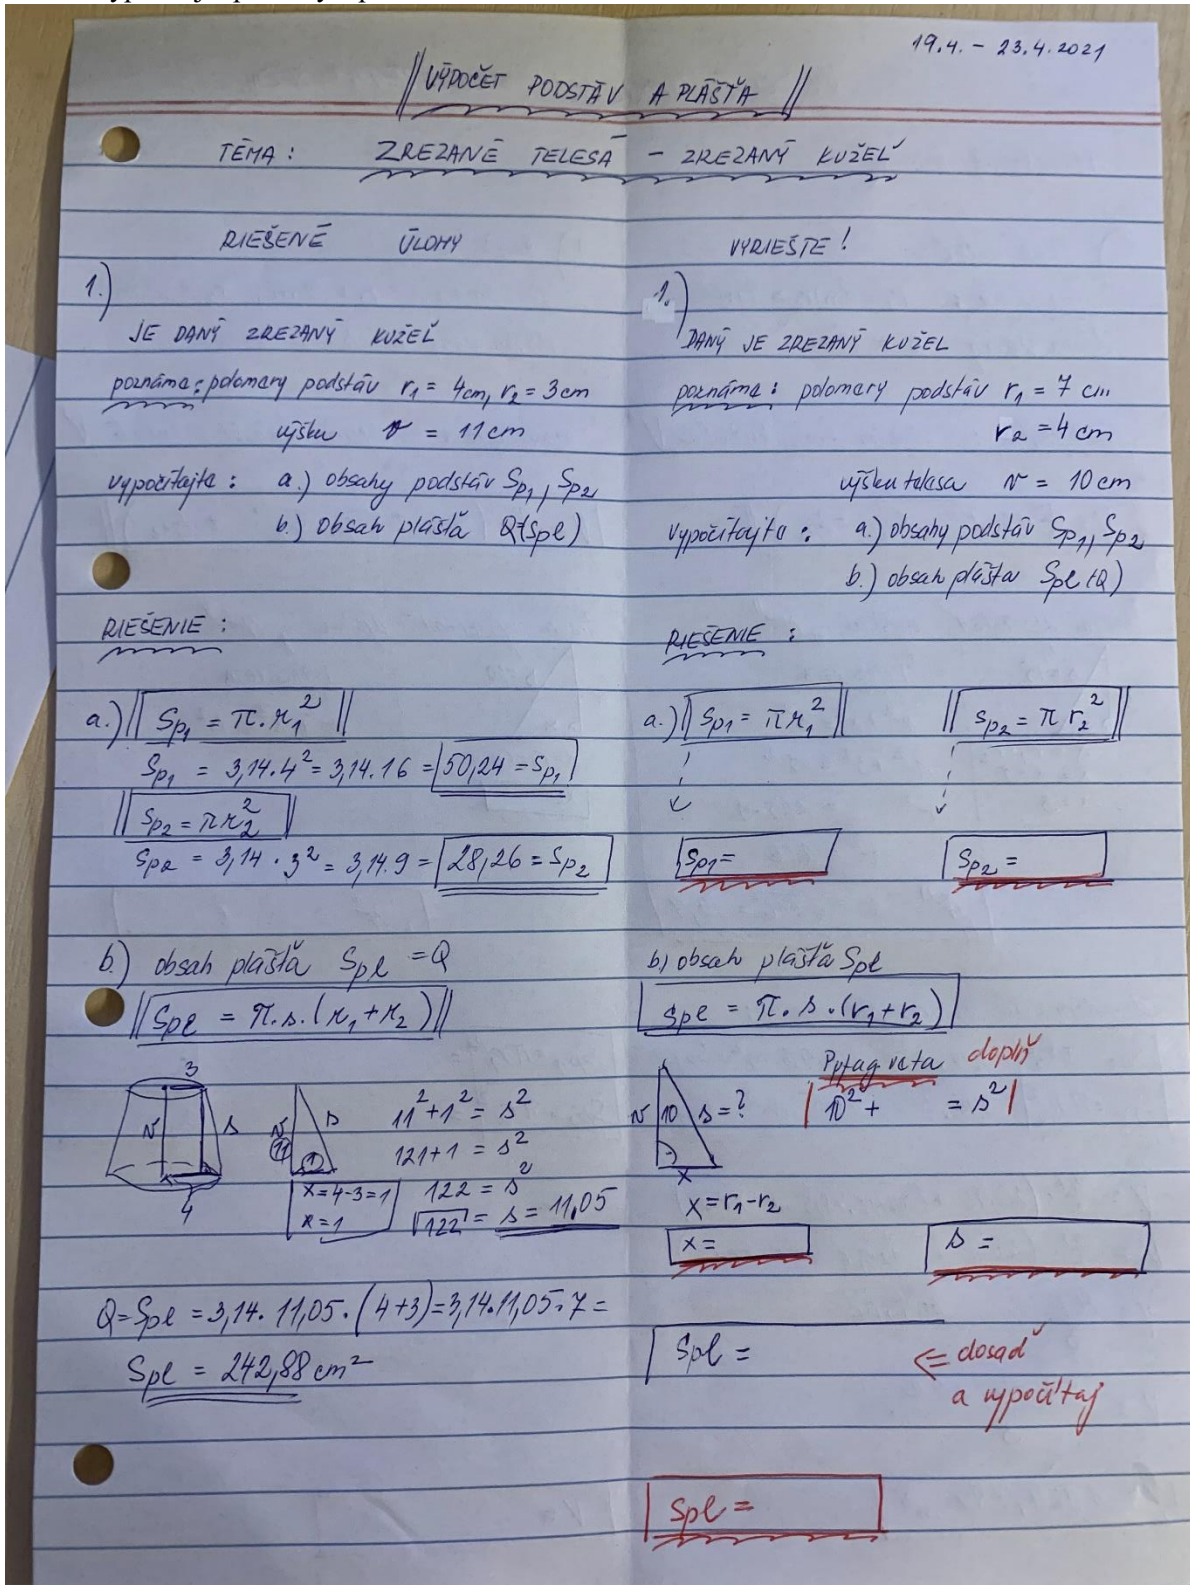 19.4. - 23.4.2021
VÝPOČET PODSTÁV A PLÁŠŤA
TÉMA : ZREZANÉ TELESÁ - ZREZANÝ KUŽEĽ
RIEŠENÉ ÚLOHY
1.)
JE DANÝ ZREZANÝ KUŽEĽ
poznáme: polomery podstáv r₁ = 4cm, r₂ = 3cm
výšku v = 11 cm
vypočítajte : a.) obsahy podstáv Sp₁, Sp₂
b.) obsah plášťa Q=(Spl)
RIEŠENIE :
a.) Sp₁ = π.r₁²
Sp₁ = 3,14.4² = 3,14.16 = 50,24 = Sp₁
Sp₂ = πr₂²
Sp₂ = 3,14 . 3² = 3,14.9 = 28,26 = Sp₂
b.) obsah plášťa Spl = Q
Spl = π.s.(r₁+r₂)
3
v
s
4
v
11
s
1
x=4-3=1
x=1
11²+1² = s²
121+1 = s²
122 = s²
√122 = s = 11,05
Q=Spl = 3,14. 11,05.(4+3)=3,14.11,05.7=
Spl = 242,88 cm²
VYRIEŠTE !
1.)
DANÝ JE ZREZANÝ KUŽEL
poznáme : polomery podstáv r₁ = 7 cm
r₂ = 4 cm
výšku telesa v = 10 cm
Vypočítajte : a.) obsahy podstáv Sp₁, Sp₂
b.) obsah plášťa Spl (Q)
RIEŠENIE :
a.) Sp₁ = πr₁² Sp₂ = π r₂²
Sp₁= Sp₂ =
b) obsah plášťa Spl
Spl = π. s .(r₁+r₂)
Pytag veta doplň
v 10 s=? 10²+ = s²
x
x=r₁-r₂
x= s =
Spl = ⇐ dosaď
a vypočítaj
Spl =